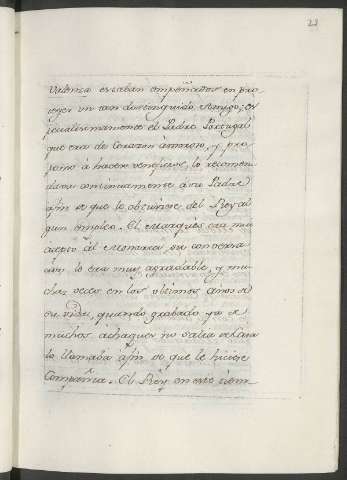 22
Valencia estaban empeñados en pro
teger un tan distinguido Amigo; es
pecialisimamente el Padre Portugal
que era de Corazon amoroso, y pro
penso à hacer veneficios, lo recomen
daba continuamente à su Padre
afin de que le obtuviese del Rey al
gun empleo. El Marqués era mui
acepto àl Monarca, su conversa
cion le era muy agradable, y mu
chas veces en los ultimos años de
su vida, quando grabado ya de
muchos achaques no salia de Casa
lo llamaba àfin de que le hiciese
Compañia. El Rey en este tiem